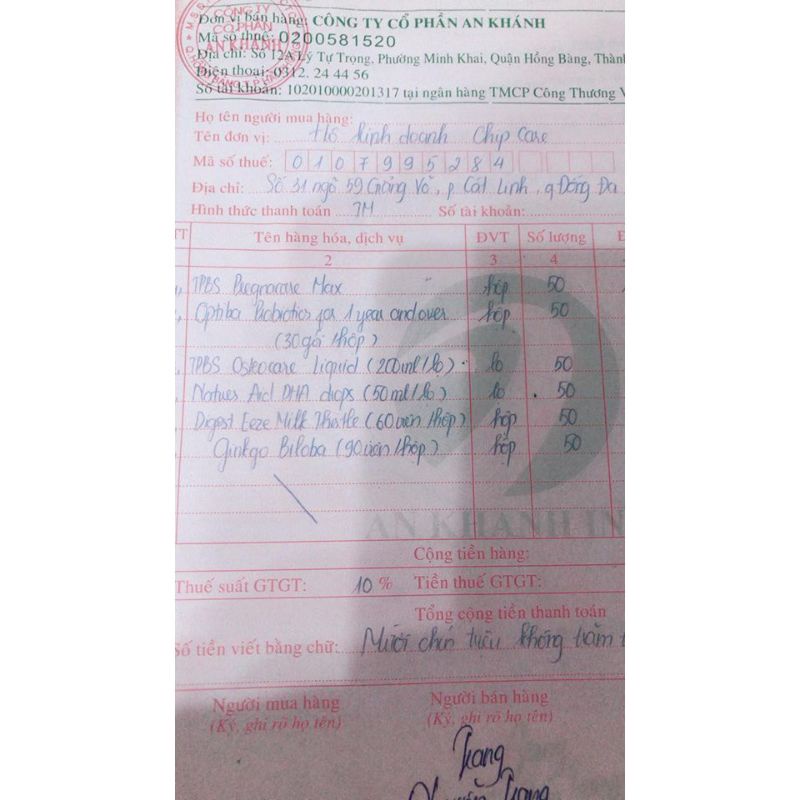 CÔNG TY
CỔ PHẦN
AN KHÁNH
Đơn vị bán hàng: CÔNG TY CỔ PHẦN AN KHÁNH
Mã số thuế: 0200581520
Địa chỉ: Số 12A Lý Tự Trọng, Phường Minh Khai, Quận Hồng Bàng, Thành
Điện thoại: 0312. 24 44 56
Số tài khoản: 102010000201317 tại ngân hàng TMCP Công Thương V
Họ tên người mua hàng:
Tên đơn vị: Hộ kinh doanh Chip Care
Mã số thuế: 0107995284
Địa chỉ: Số 31 ngõ 59 Giảng Võ, p Cát Linh, q Đống Đa
Hình thức thanh toán TM Số tài khoản:
TT Tên hàng hóa, dịch vụ ĐVT Số lượng Đ
2 3 4
TPBS Pregnacare Max hộp 50
Optiba Probiotics for 1 year and over hộp 50
(30 gói/hộp)
TPBS Osteocare Liquid (200ml/lọ) lọ 50
Natures Aid DHA drops (50ml/lọ) lọ 50
Digest Eeze Milk Thistle (60 viên/hộp) hộp 50
Ginkgo Biloba (90 viên/hộp) hộp 50
AN KHANH IN
Cộng tiền hàng:
Thuế suất GTGT: 10 % Tiền thuế GTGT:
Tổng cộng tiền thanh toán
Số tiền viết bằng chữ: Mười chín triệu không trăm
Người mua hàng Người bán hàng
(Ký, ghi rõ họ tên) (Ký, ghi rõ họ tên)
Trang
Trang